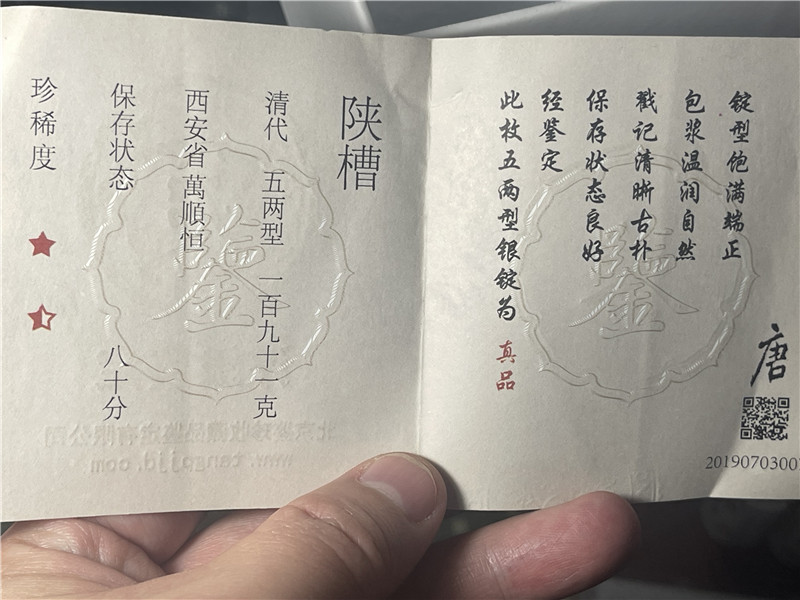 锭型饱满端正
包浆温润自然
戳记清晰古朴
保存状态良好
经鉴定
此枚五两型银锭为 真品
唐
陕槽
清代 五两型 一百九十一克
西安省 萬順恒
保存状态 八十分
珍稀度